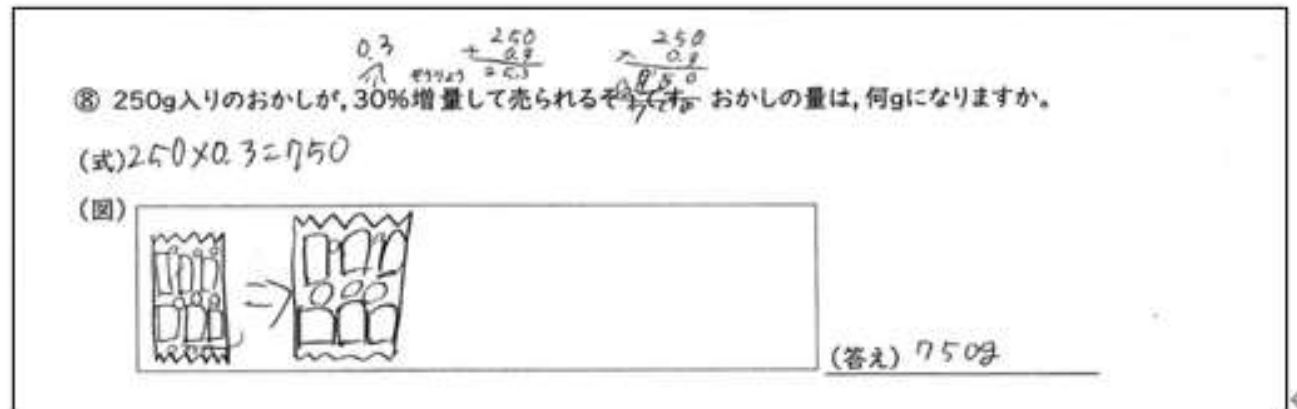 0.3
250
250
ぞうりょう
⑧ 250g入りのおかしが,30%増量して売られるそうです。 おかしの量は,何gになりますか。
(式)250×0.3=750
(図)
(答え) 750g